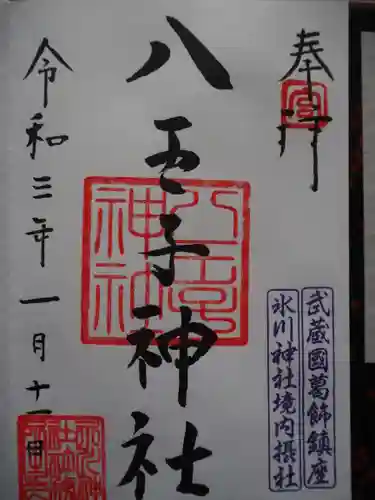 奉拝
武蔵國葛飾鎮座
氷川神社境内摂社
八王子神社
八王子神社
令和三年一月十一日